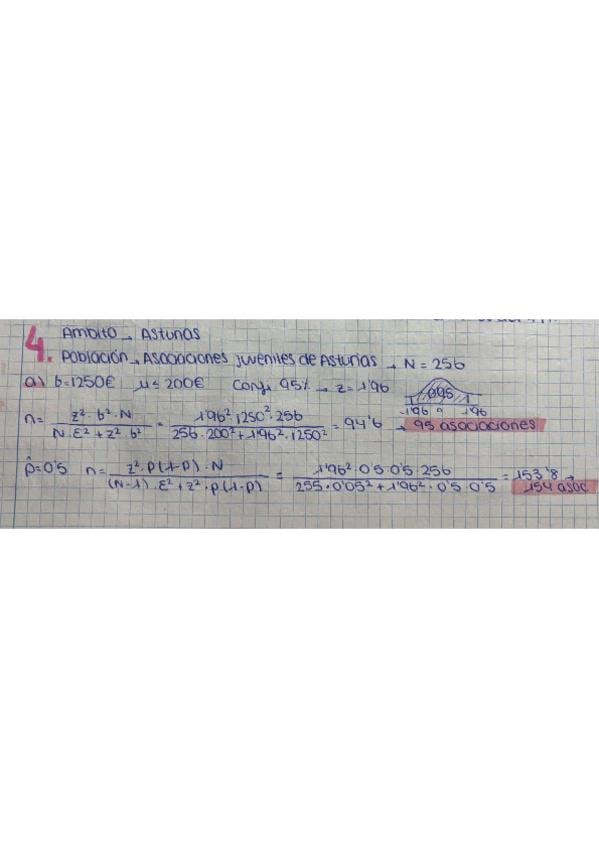 4. Ámbito → Asturias
Población → Asociaciones juveniles de Asturias → N = 256
a) б=1250€ μ ≤ 200€ Conf. 95% → z = 1'96 0'95
-1'96 0 1'96
n = z²·б²·N / N·ε²+z²·б² = 1'96²·1250²·256 / 256·200²+1'96²·1250² = 94'6 → 95 asociaciones
p̂=0'5 n = z²·p(1-p)·N / (N-1)·ε²+z²·p(1-p) = 1'96²·0'5·0'5·256 / 255·0'05²+1'96²·0'5·0'5 = 153'8 →
154 asoc